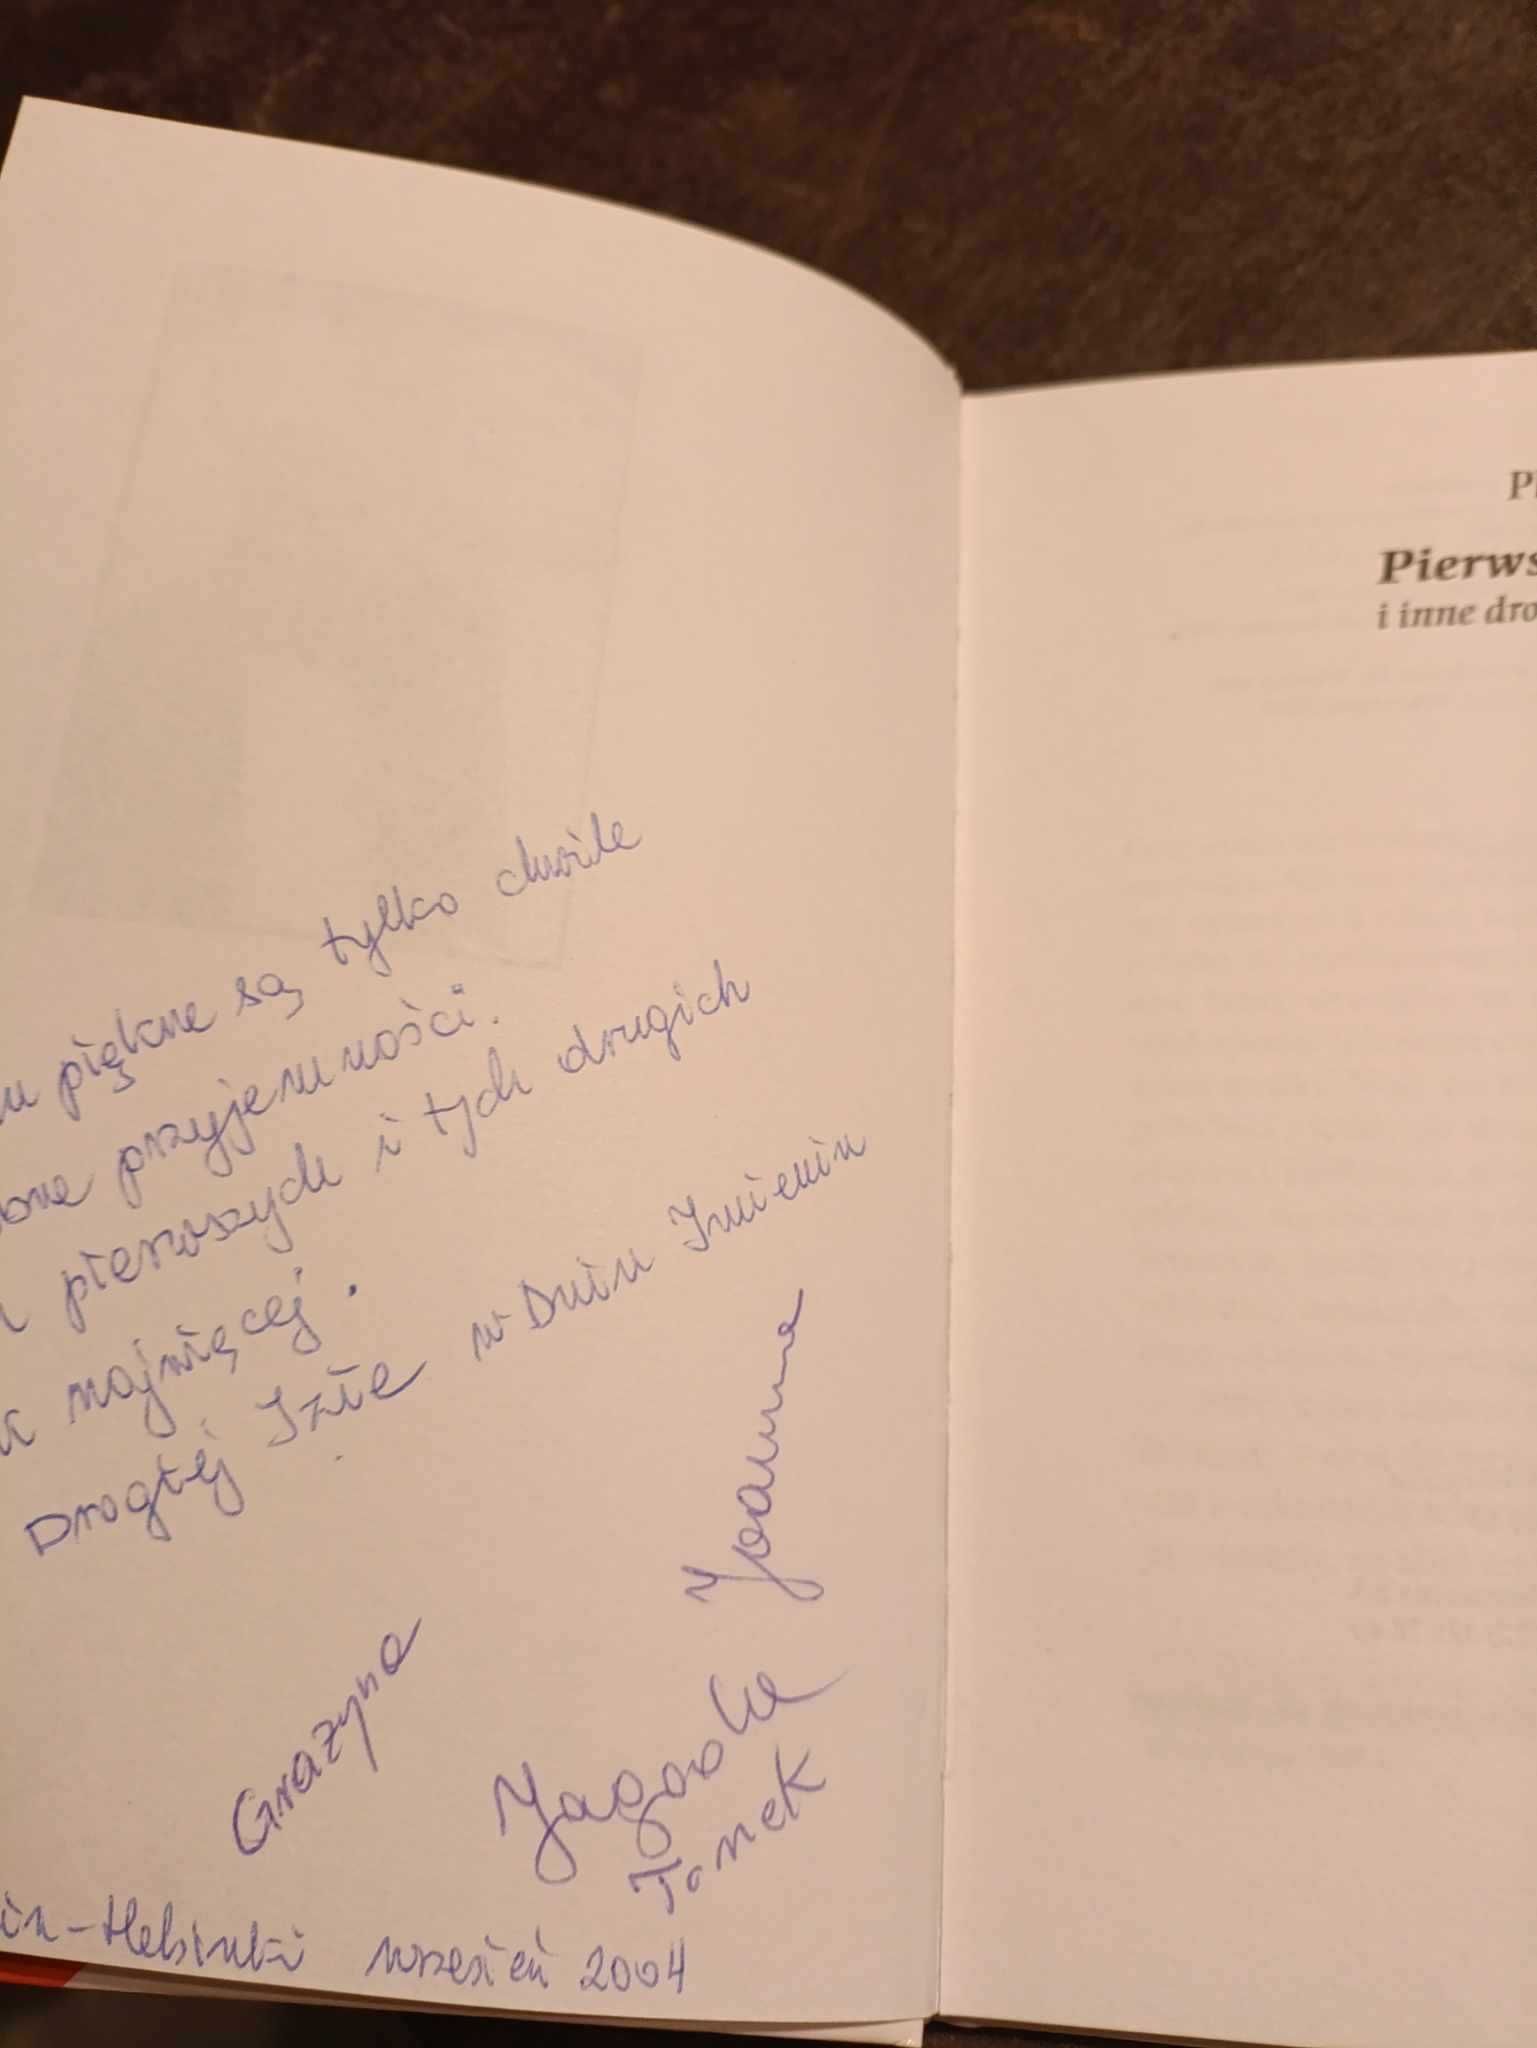 piękne są tylko chwile
przyjemności.
pierwszych i tych drugich
najwięcej.
Drogiej Izie w Dniu Imienin
Joanna
Grażyna
Jagoda
Tomek
in-Helsinki wrzesień 2004
Pierws
i inne dro